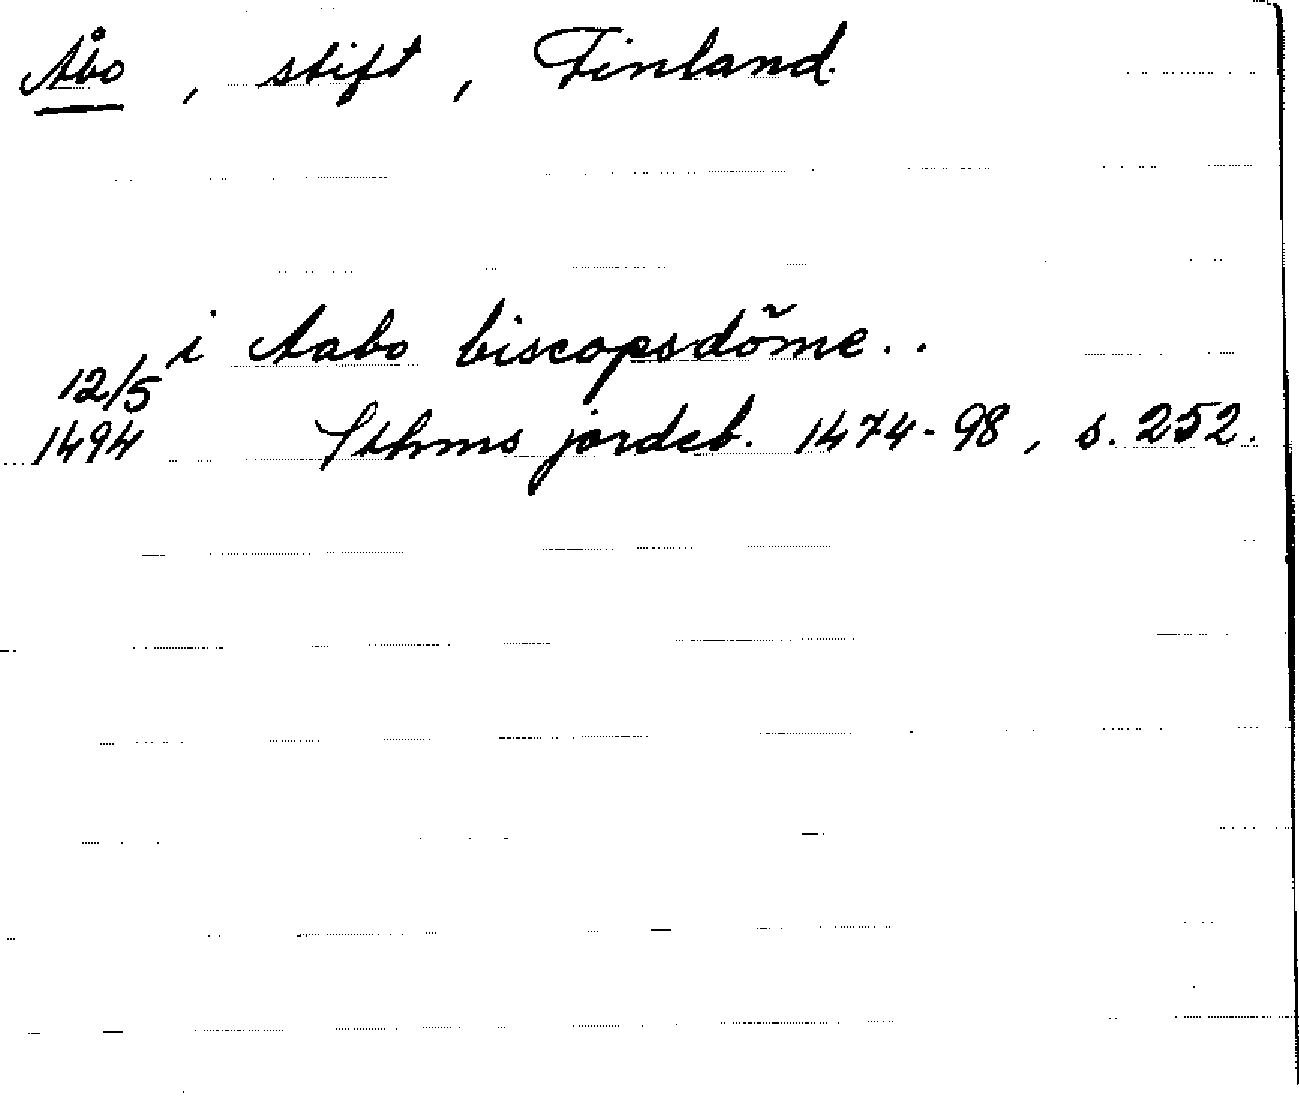 Åbo, stift, Finland.
i Aabo biscopsdōme..
12/5
1494 Sthms jordeb. 1474-98, s. 252.